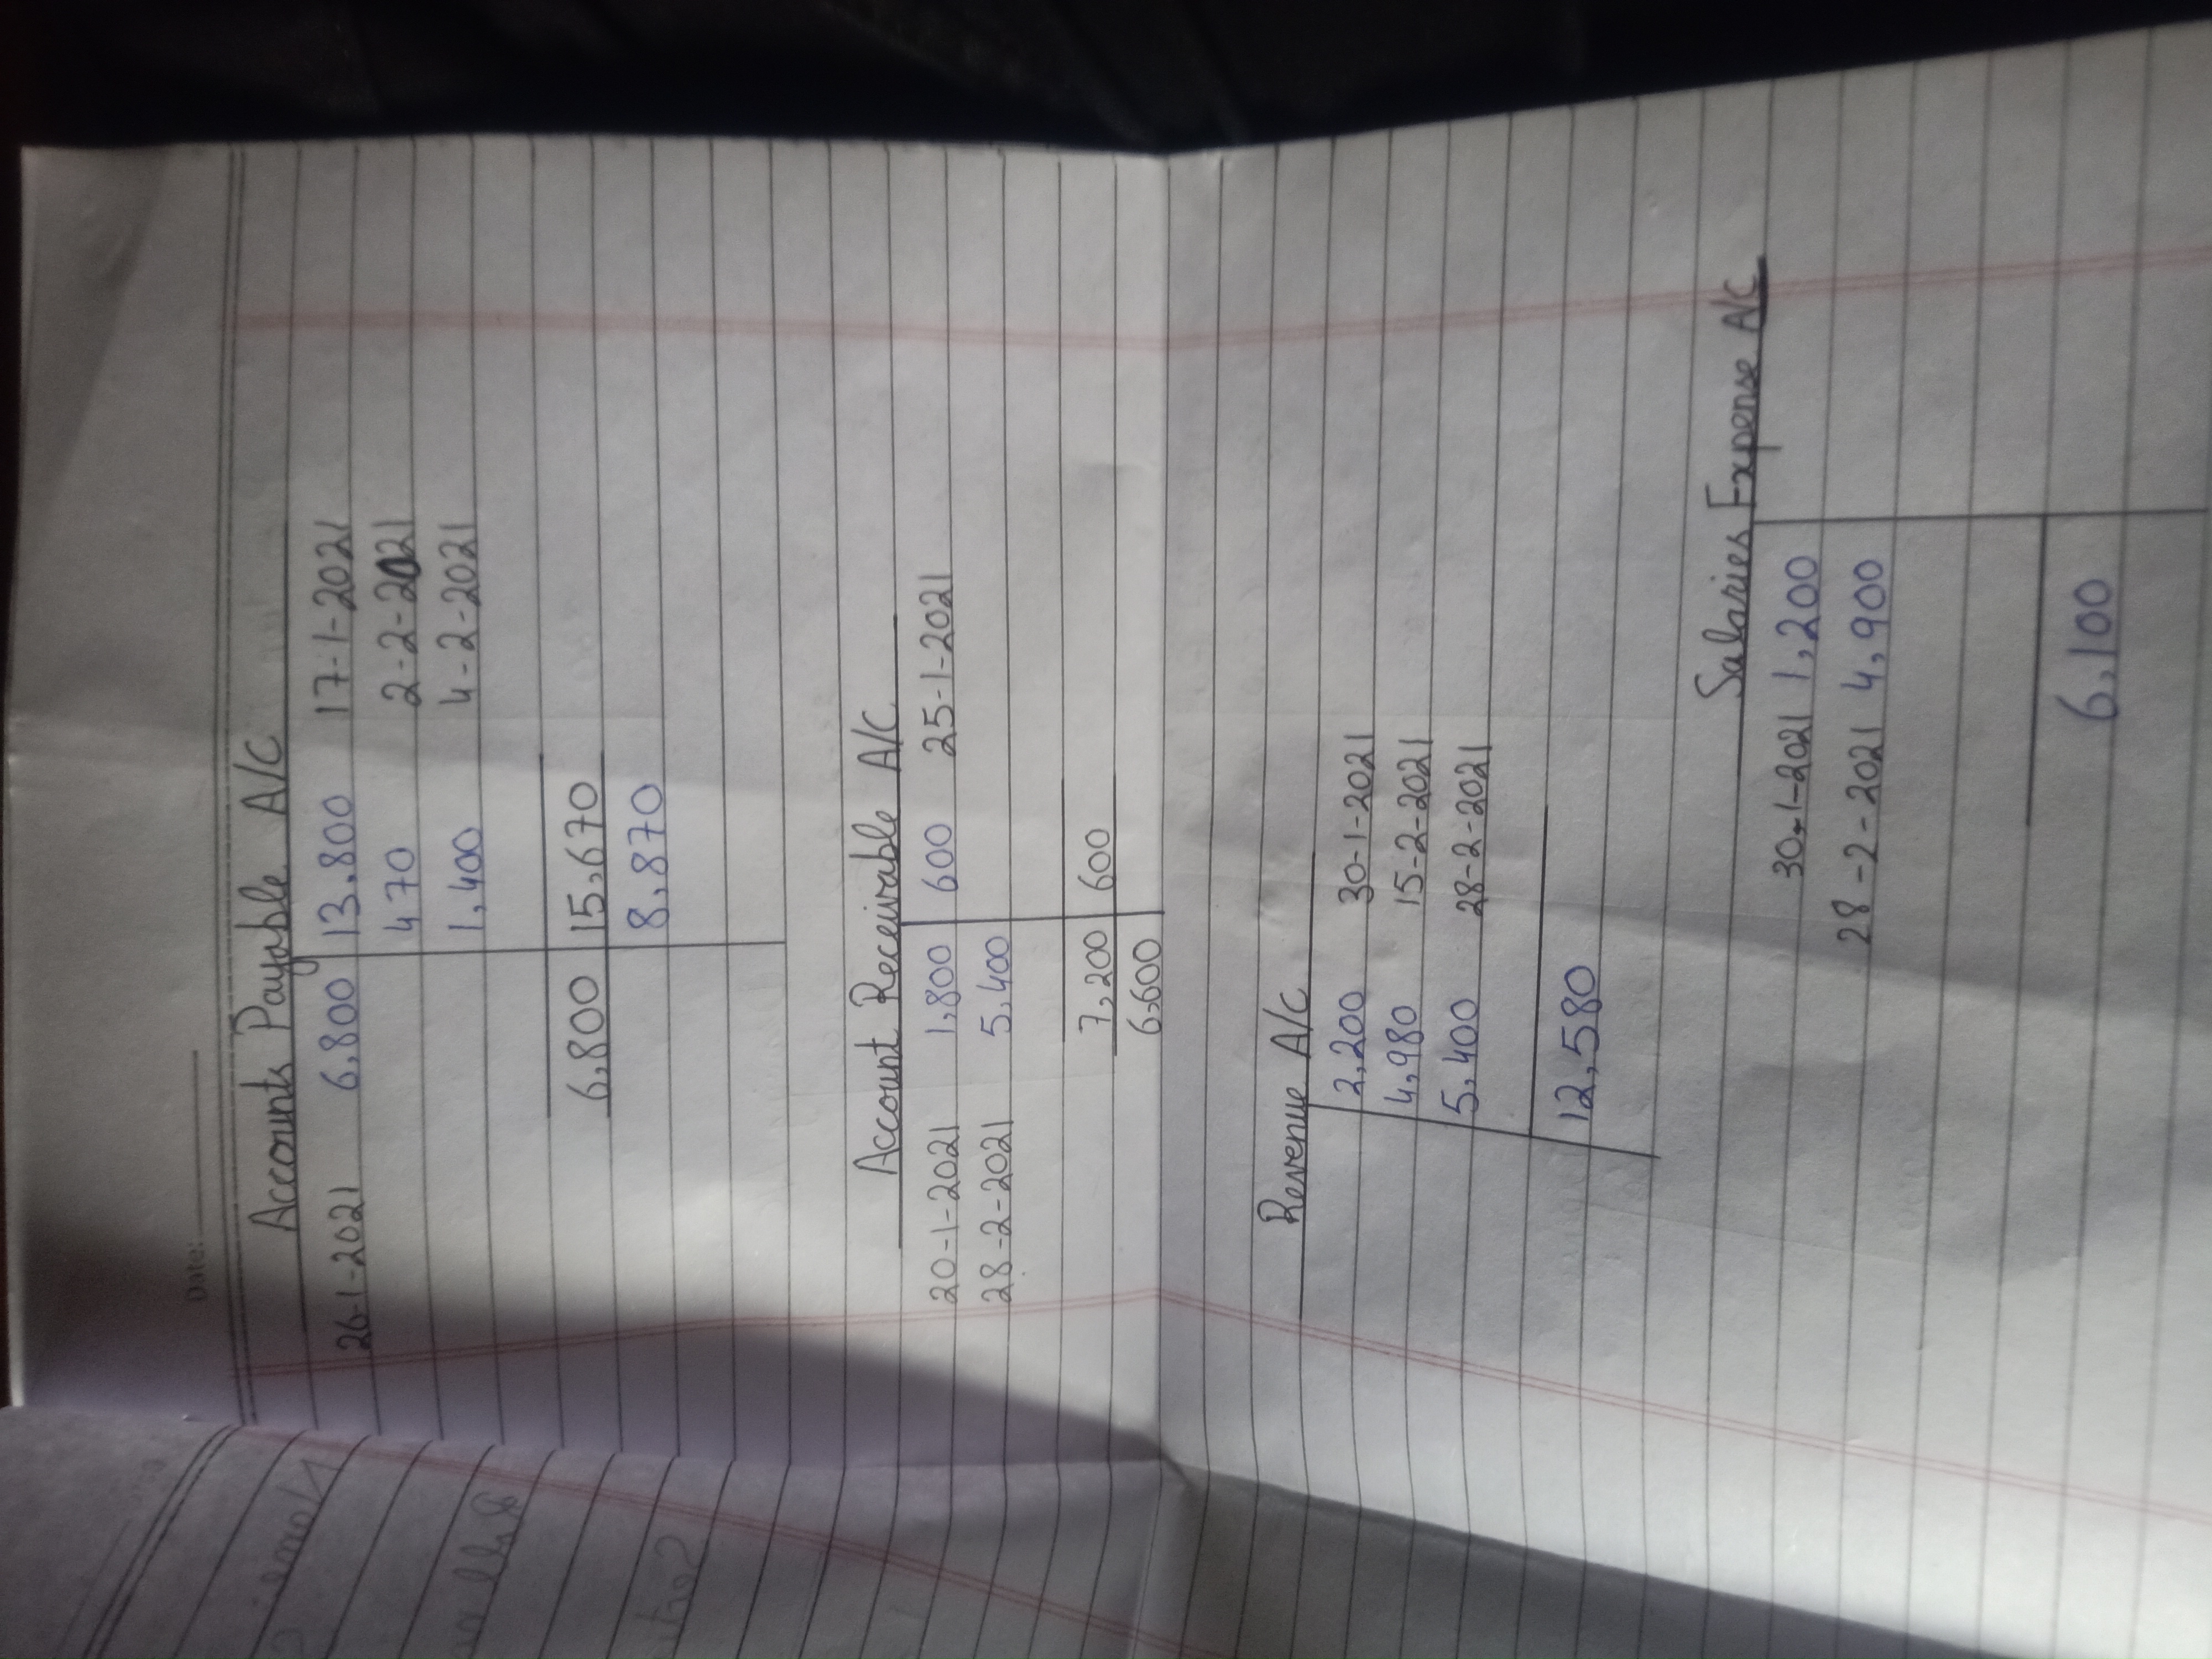 Date:
Accounts Payable A/C
26-1-2021 6,800 13,800 17-1-2021
470 2-2-2021
1,400 4-2-2021
6,800 15,670
8,870
Account Receivable A/C
20-1-2021 1,800 600 25-1-2021
28-2-2021 5,400
7,200 600
6,600
Revenue A/C
2,200 30-1-2021
4,980 15-2-2021
5,400 28-2-2021
12,580
Salaries Expense A/C
30-1-2021 1,200
28-2-2021 4,900
6,100